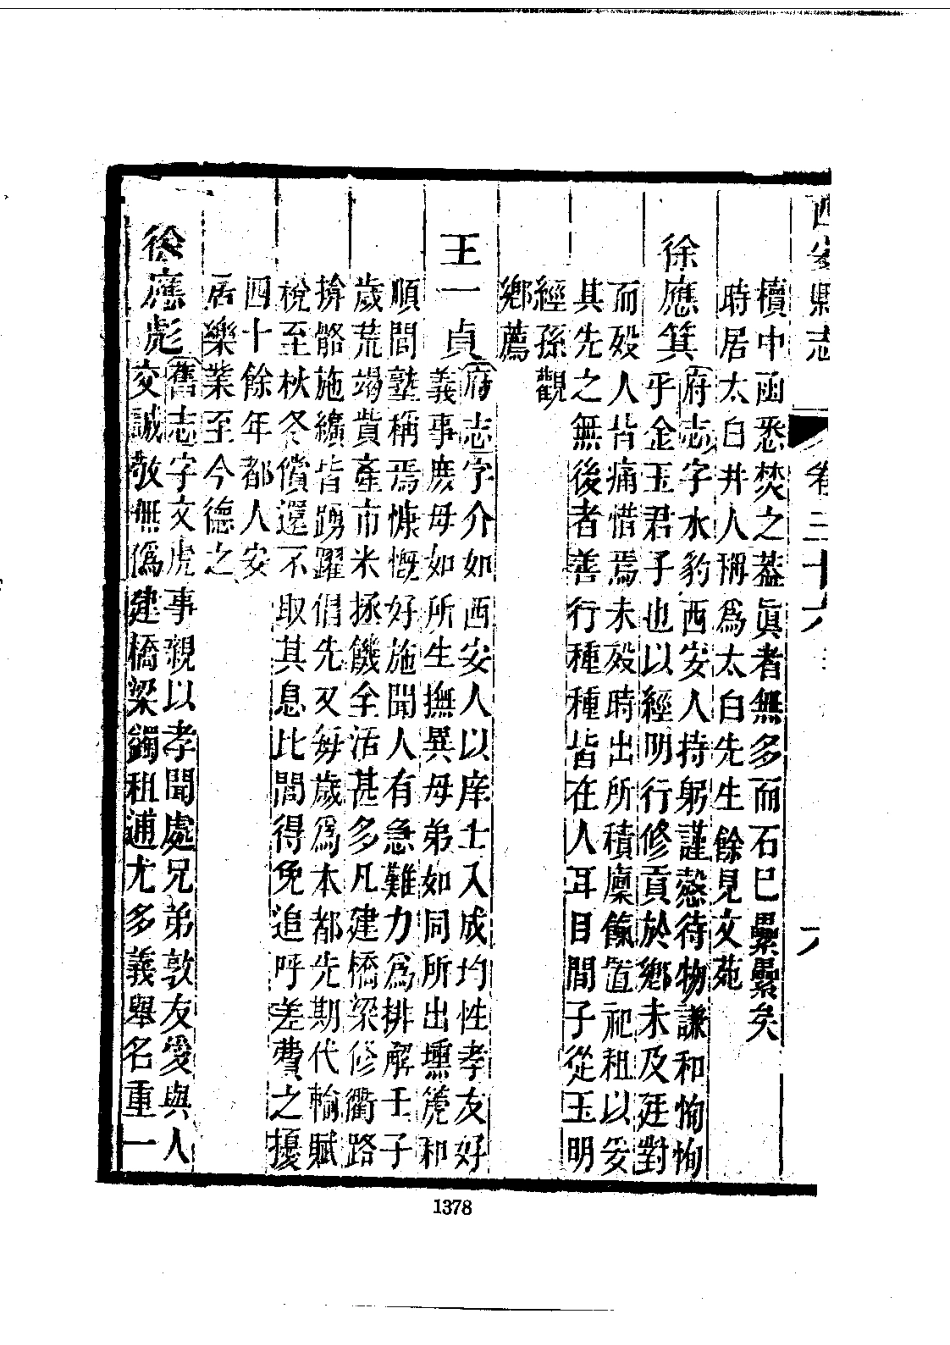 西安縣志　卷三十六　六
櫝中函悉焚之葢眞者無多而石已纍纍矣
時居太白井人稱爲太白先生餘見文苑
徐應箕府志字水豹西安人持躬謹慤待物謙和恂恂
乎金玉君子也以經明行修貢於鄉未及廷對
而歿人皆痛惜焉未歿時出所積廩餼置祀租以妥
其先之無後者善行種種皆在人耳目間子從玉明
經孫觀
鄉薦
王一貞府志字介如西安人以庠士入成均性孝友好
義事庶母如所生撫異母弟如同所出壎箎和
順閭塾稱焉慷慨好施聞人有急難力爲排解壬子
歲荒竭貲產市米拯饑全活甚多凡建橋梁修衢路
揜骼施纊皆踴躍倡先又每歲爲本都先期代輸賦
稅至秋冬償還不取其息比閭得免追呼差費之擾
四十餘年都人安
居樂業至今德之
徐應彪舊志字文虎事親以孝聞處兄弟敦友愛與人
交誠敬無僞建橋梁蠲租逋尤多義舉名重一
1378